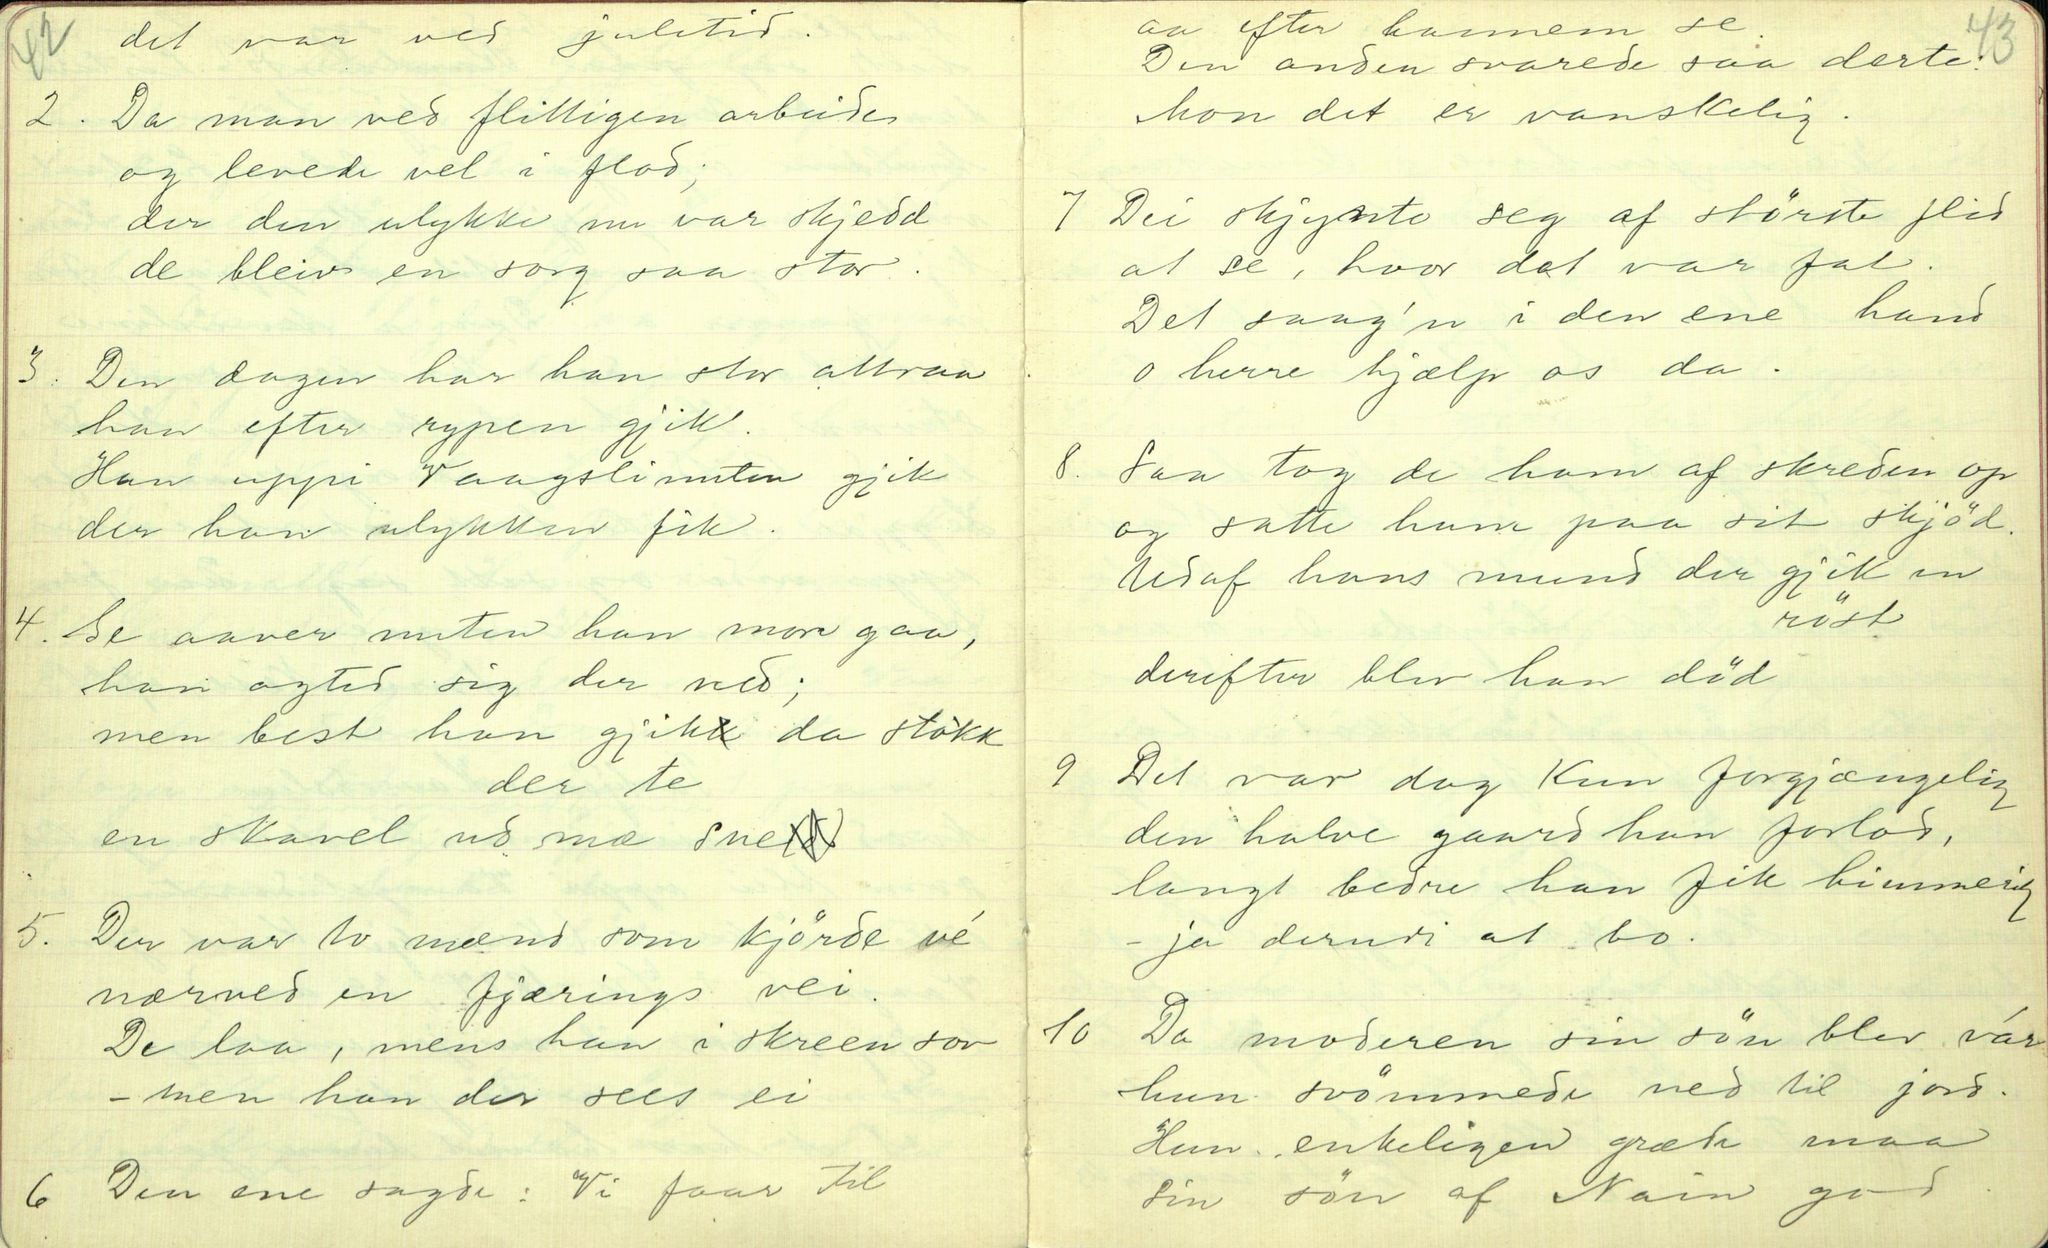 42
det var ved juletid.
2. Da man ved flittigen arbeider
og levede vel i flod;
der den ulykke nu var skjedd
de bleiv en sorg saa stor.
3. Den dagen har han stor attraa
han efter rypen gjik.
Han uppi Vaagslinuten gjik
der han ulykken fik.
4. Se aaver nuten han mon gaa,
han agted sig der ned;
men best han gjikk da stökk
der te
en skavel ud mæ sne
5. Der var to mænd som kjörde vé
nærved en fjærings vei.
De laa, mens han i skreen sov
- men han der sees ei
6 Den ene sagde: Vi faar til
43
aa efter hannem se.
Den anden svarede saa derte:
hon det er vanskelig.
7 Dei skjynte seg af störste flid
at se, hvor det var fat.
Det saag'n i den ene hand
o herre hjælp os da.
8. Saa tog de ham af skreden op
og satte ham paa sit skjöd.
Udaf hans mund der gjik en
röst
derefter blev han död
9 Det var dog kun forgjængelig
den halve gaard han forlod,
langt bedre han fik himmerig
- ja derudi at bo.
10 Da moderen sin sön blev vár
hun svömmede ned til jord.
Hun enkeligen græde maa
sin sön af Nain god